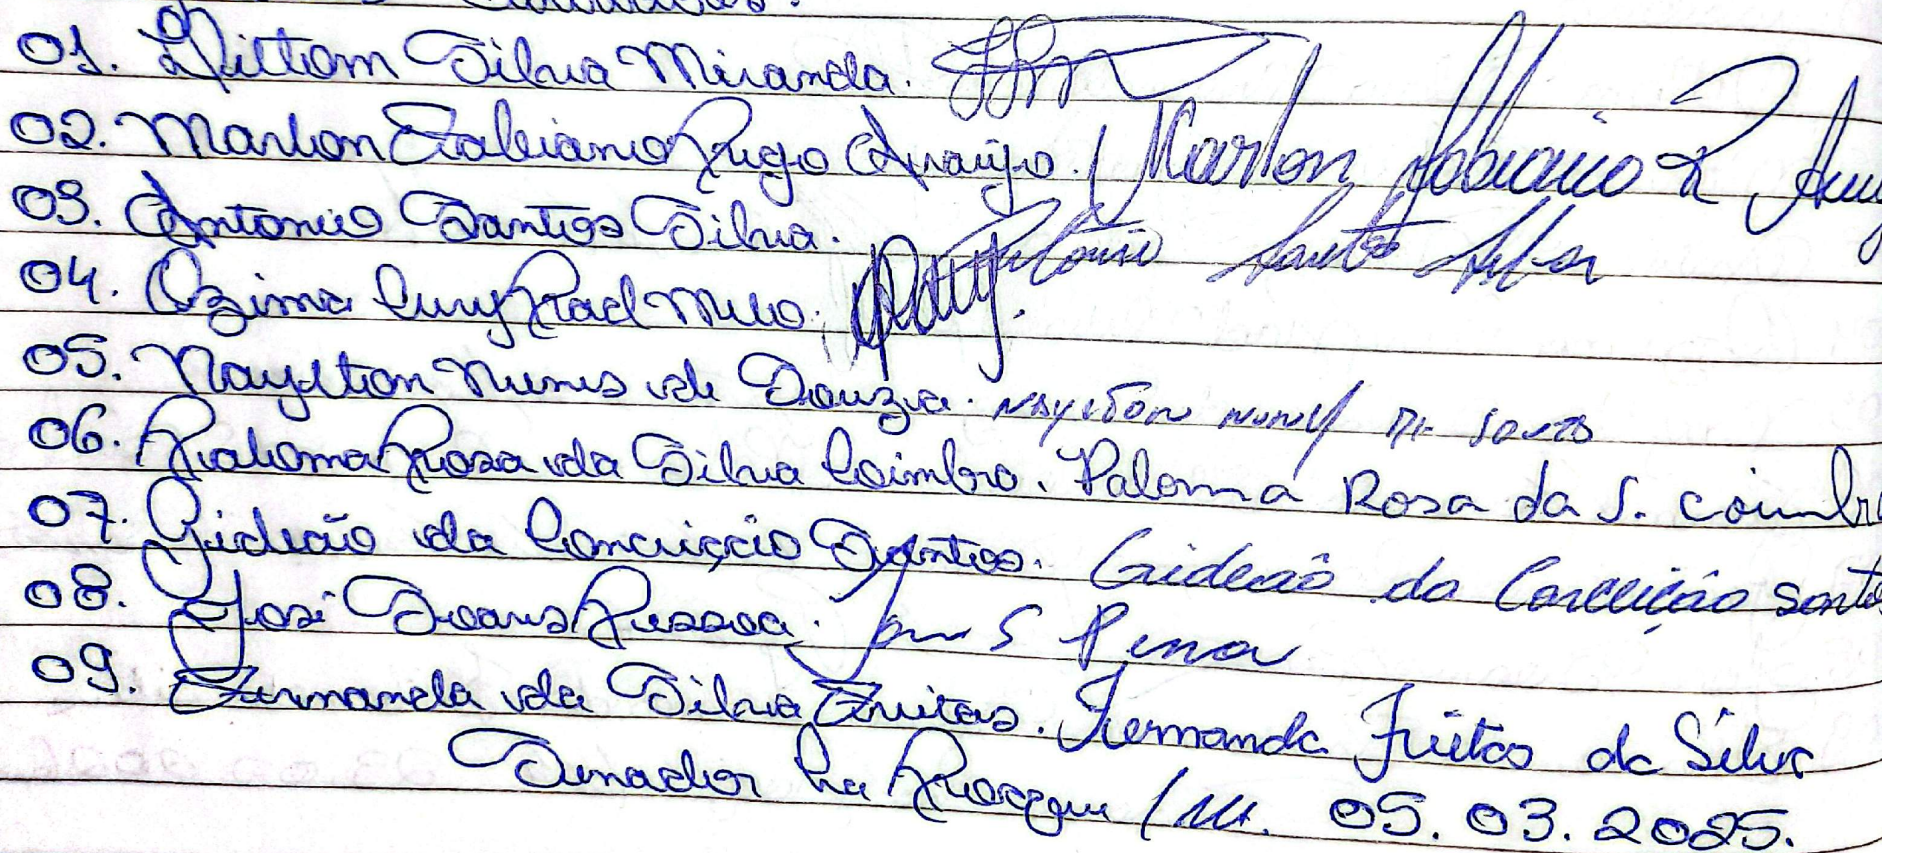 01. Silva Miranda.
02. Marlon Fabiano Rego Araújo. Marlon Fabiano R
03. Antonio Santos Silva. Antônio Santos Silva
04. Ozima Melo.
05. Naylton Nunes de Souza.
06. Paloma Rosa da Silva Coimbra. Paloma Rosa da S. Coimbra
07. Gideão da Conceição Santos. Gideão da Conceição Santos
08. José Soares Pessoa.
09. Fernanda da Silva Freitas. Fernanda Freitas da Silva
Senador La Rocque / MA. 05.03.2025.